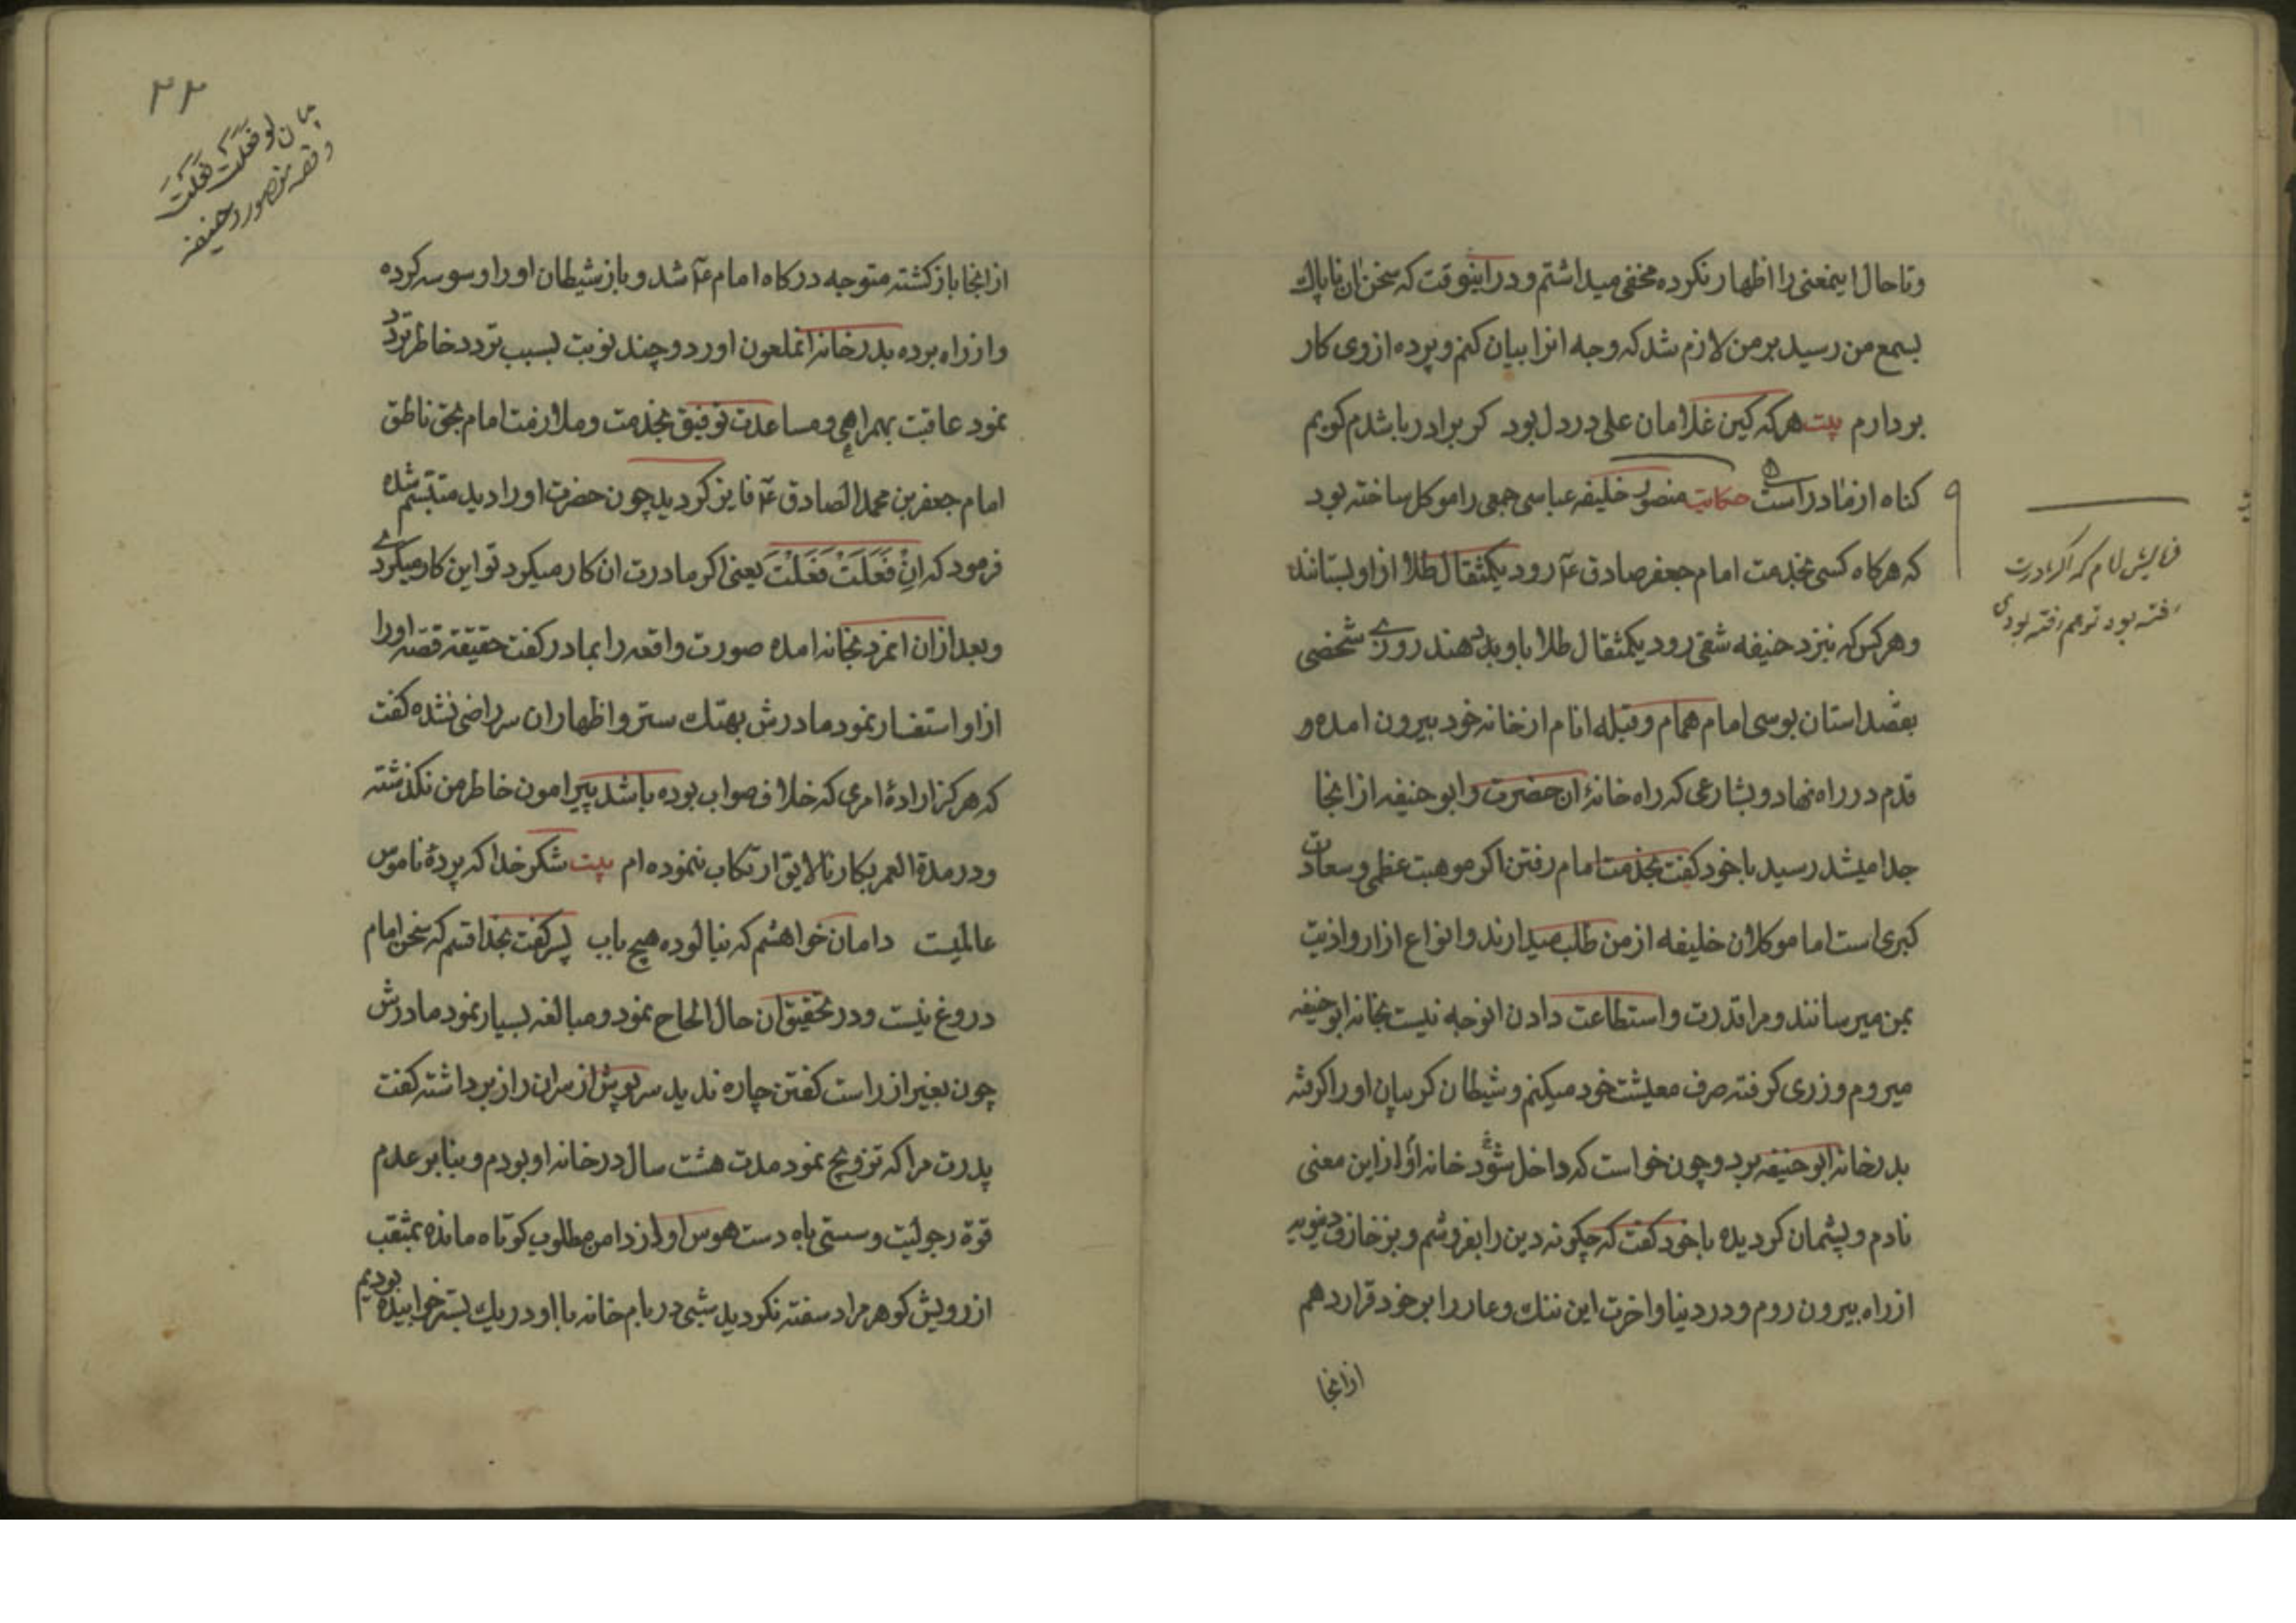 وتا حال اینمعنی را اظهار نکرده مخفی میداشتم و در اینوقت که سخن آن ناپاك
بسمع من رسید بر من لازم شد که وجه انرا بیان کنم و پرده از روی کار
بردارم بیت هر که کین غلامان علی در دل بود کر برادر باشدم کویم
کناه از مادر است حکایت منصور خلیفه عباسی جمعی را موکل ساخته بود
که هر کاه کسی بخدمت امام جعفر صادق ع۴ رود یکمثقال طلا از او بستانند
وهر کس که بنزد حنیفه شقی رود یکمثقال طلا باو بدهند روزے شخصی
بقصد استان بوسی امام همام و قبله انام از خانه خود بیرون امده و
قدم در راه نهاد و بشارعی که راه خانۀ ان حضرت و ابو حنیفه از انجا
جدا میشد رسید با خود کفت بخدمت امام رفتن اکر موهبت عظمی و سعادت
کبری است اما موکلان خلیفه از من طلب میدارند و انواع ازار و اذیت
بمن میرسانند و مرا قدرت و استطاعت دادن انوجه نیست بخانه ابو حنیفه
میروم و زری کرفته صرف معیشت خود میکنم و شیطان کریبان او را کرفته
بدر خانه ابو حنیفه برد و چون خواست که داخل شود خانه او از این معنی
نادم و پشیمان کردیده با خود کفت که چکونه دین را بفروشم و بزخارف دنیویه
از راه بیرون روم و در دنیا و اخرت این ننك و عار را بر خود قرار دهم
از انجا
فرمایش امام که اکر مادرت
رفته بود تو هم رفته بودی
۲۲
لو فعلت فعلت
و قصه منصور و حنیفه
از انجا باز کشته متوجه درکاه امام ع۴ شد و باز شیطان او را وسوسه کرده
و از راه برده بدر خانه انملعون اورد و چند نوبت بسبب تردد خاطر تردد
نمود عاقبت بهمراهی و مساعدت توفیق بخدمت و ملازمت امام بحق ناطق
امام جعفر بن محمد الصادق ع۴ فایز کردید چون حضرت او را دید متبسم شده
فرمود که اِنْ فَعَلَتْ فَعَلْتَ یعنی اکر مادرت ان کار میکرد تو این کار میکردے
و بعد از ان انمرد بخانه امده صورت واقعه را بمادر کفت حقیقة قصه او را
از او استفسار نمود مادرش بهتك ستر و اظهار ان سر راضی نشده کفت
که هرکز ارادۀ امری که خلاف صواب بوده باشد پیرامون خاطر من نکذشته
و در مدة العمر بکار نالایق ارتکاب ننموده ام بیت شکر خدا که پردۀ ناموس
عالمیست دامان خواهشم که نیالوده هیچ باب پسر کفت بخدا قسم که سخن امام
دروغ نیست و در تحقیق ان حال الحاح نمود و مبالغه بسیار نمود مادرش
چون بغیر از راست کفتن چاره ندید سر پوش از سر ان راز برداشته کفت
پدرت مرا که تزویج نمود مدت هشت سال در خانه او بودم و بنا بر عدم
قوة رجولیت و سستی باه دست هوس او از دامن مطلوب کوتاه مانده بمثقب
از رویش کوهر مراد سفته نکردید شبی در بام خانه با او در یك بستر خوابیده بودیم